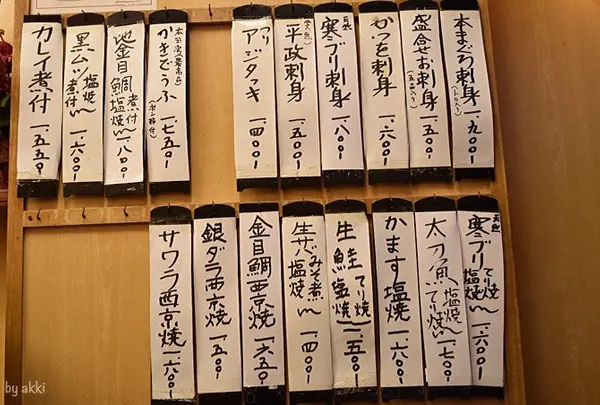 本まぐろ刺身(トロ入り)一、九〇〇
盛合せお刺身(五品入り)一、五〇〇
かつを刺身 一、六〇〇
天然 寒ブリ刺身 一、八〇〇
平政刺身 一、五〇〇
アジタタキ 一、四〇〇
かきどうふ(ポン酢付)一、七五〇
地金目鯛 煮付 塩焼 一、八〇〇
黒ムツ 塩焼 煮付 一、六〇〇
カレイ煮付 一、五五〇
天然 寒ブリ てり焼 塩焼 一、六〇〇
太刀魚 塩焼 てり焼 一、七〇〇
かます塩焼 一、六〇〇
生鮭 てり焼 塩焼 一、五〇〇
生さば みそ煮 塩焼 一、四〇〇
金目鯛西京焼 一、六五〇
銀ダラ西京焼 一、五〇〇
サワラ西京焼 一、六〇〇
by akki